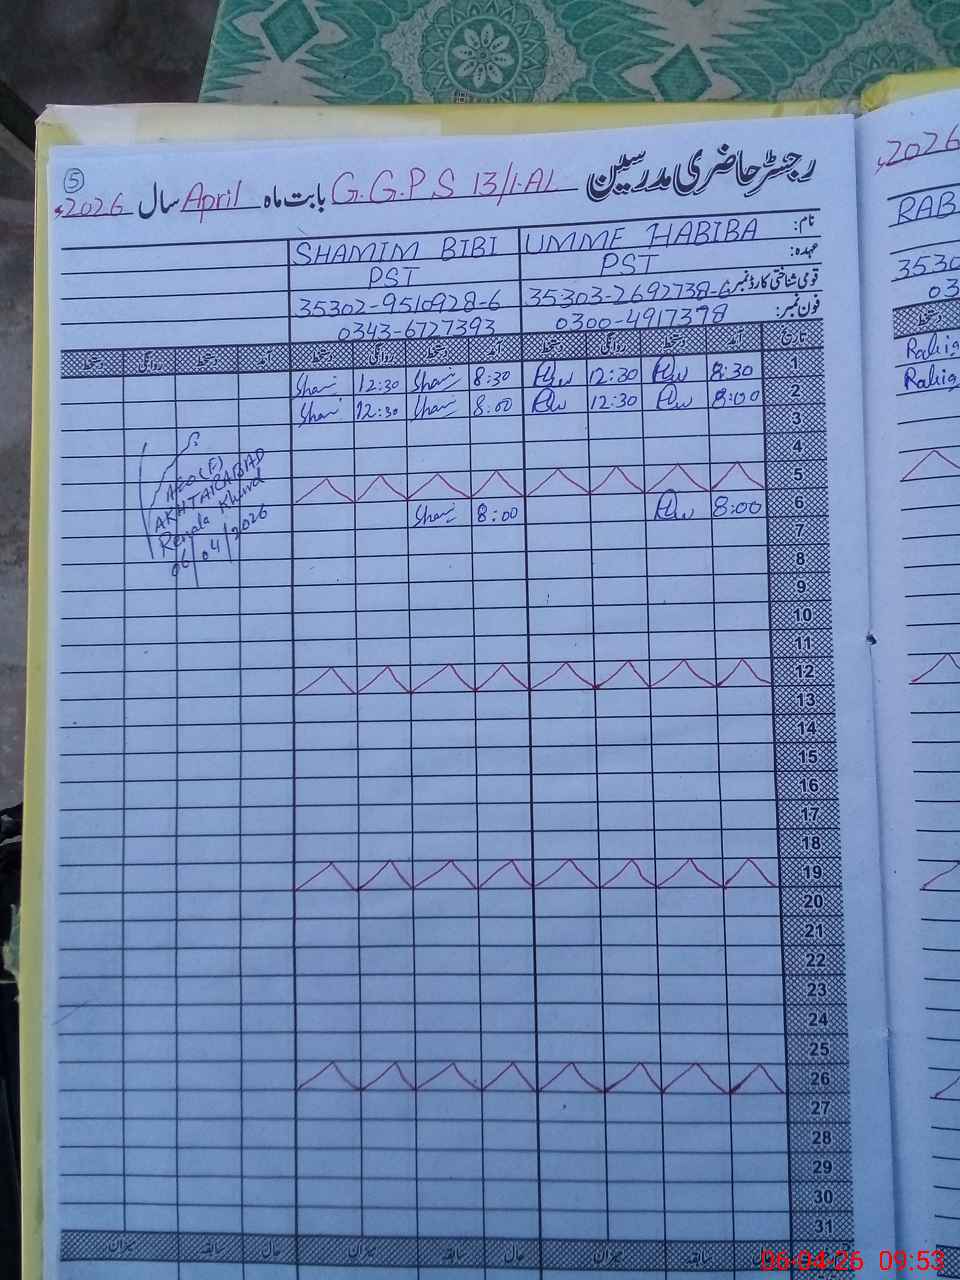 رجسٹر حاضری مدرسین G.G.P.S 13/1.AL بابت ماہ April سال 2026ء
5
نام: UMME HABIBA SHAMIM BIBI
عہدہ: PST PST
قومی شناختی کارڈ نمبر 35303-2692738-6 35302-9510928-6
فون نمبر: 0300-4917378 0343-6727393
تاریخ آمد دستخط روانگی دستخط آمد دستخط روانگی دستخط آمد دستخط روانگی دستخط
1 8:30 12:30 8:30 Sham 12:30 Sham
2 8:00 12:30 8:00 Sham 12:30 Sham
3
4
5
6 8:00 8:00 Sham
7
8
9
10
11
12
13
14
15
16
17
18
19
20
21
22
23
24
25
26
27
28
29
30
31
سابقہ میزان حال سابقہ میزان حال سابقہ میزان
AEO(F)
AKHTARABAD
Renala Khurd
06/04/2026
2026ء
RAB
3530
03
دستخط
Rabia
Rabia
06-04-26 09:53